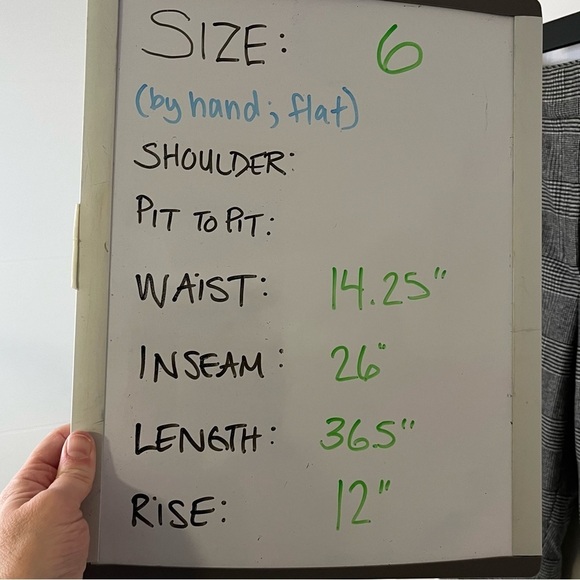 SIZE: 6
(by hand; flat)
SHOULDER:
PIT TO PIT:
WAIST: 14.25"
INSEAM: 26"
LENGTH: 36.5"
RISE: 12"